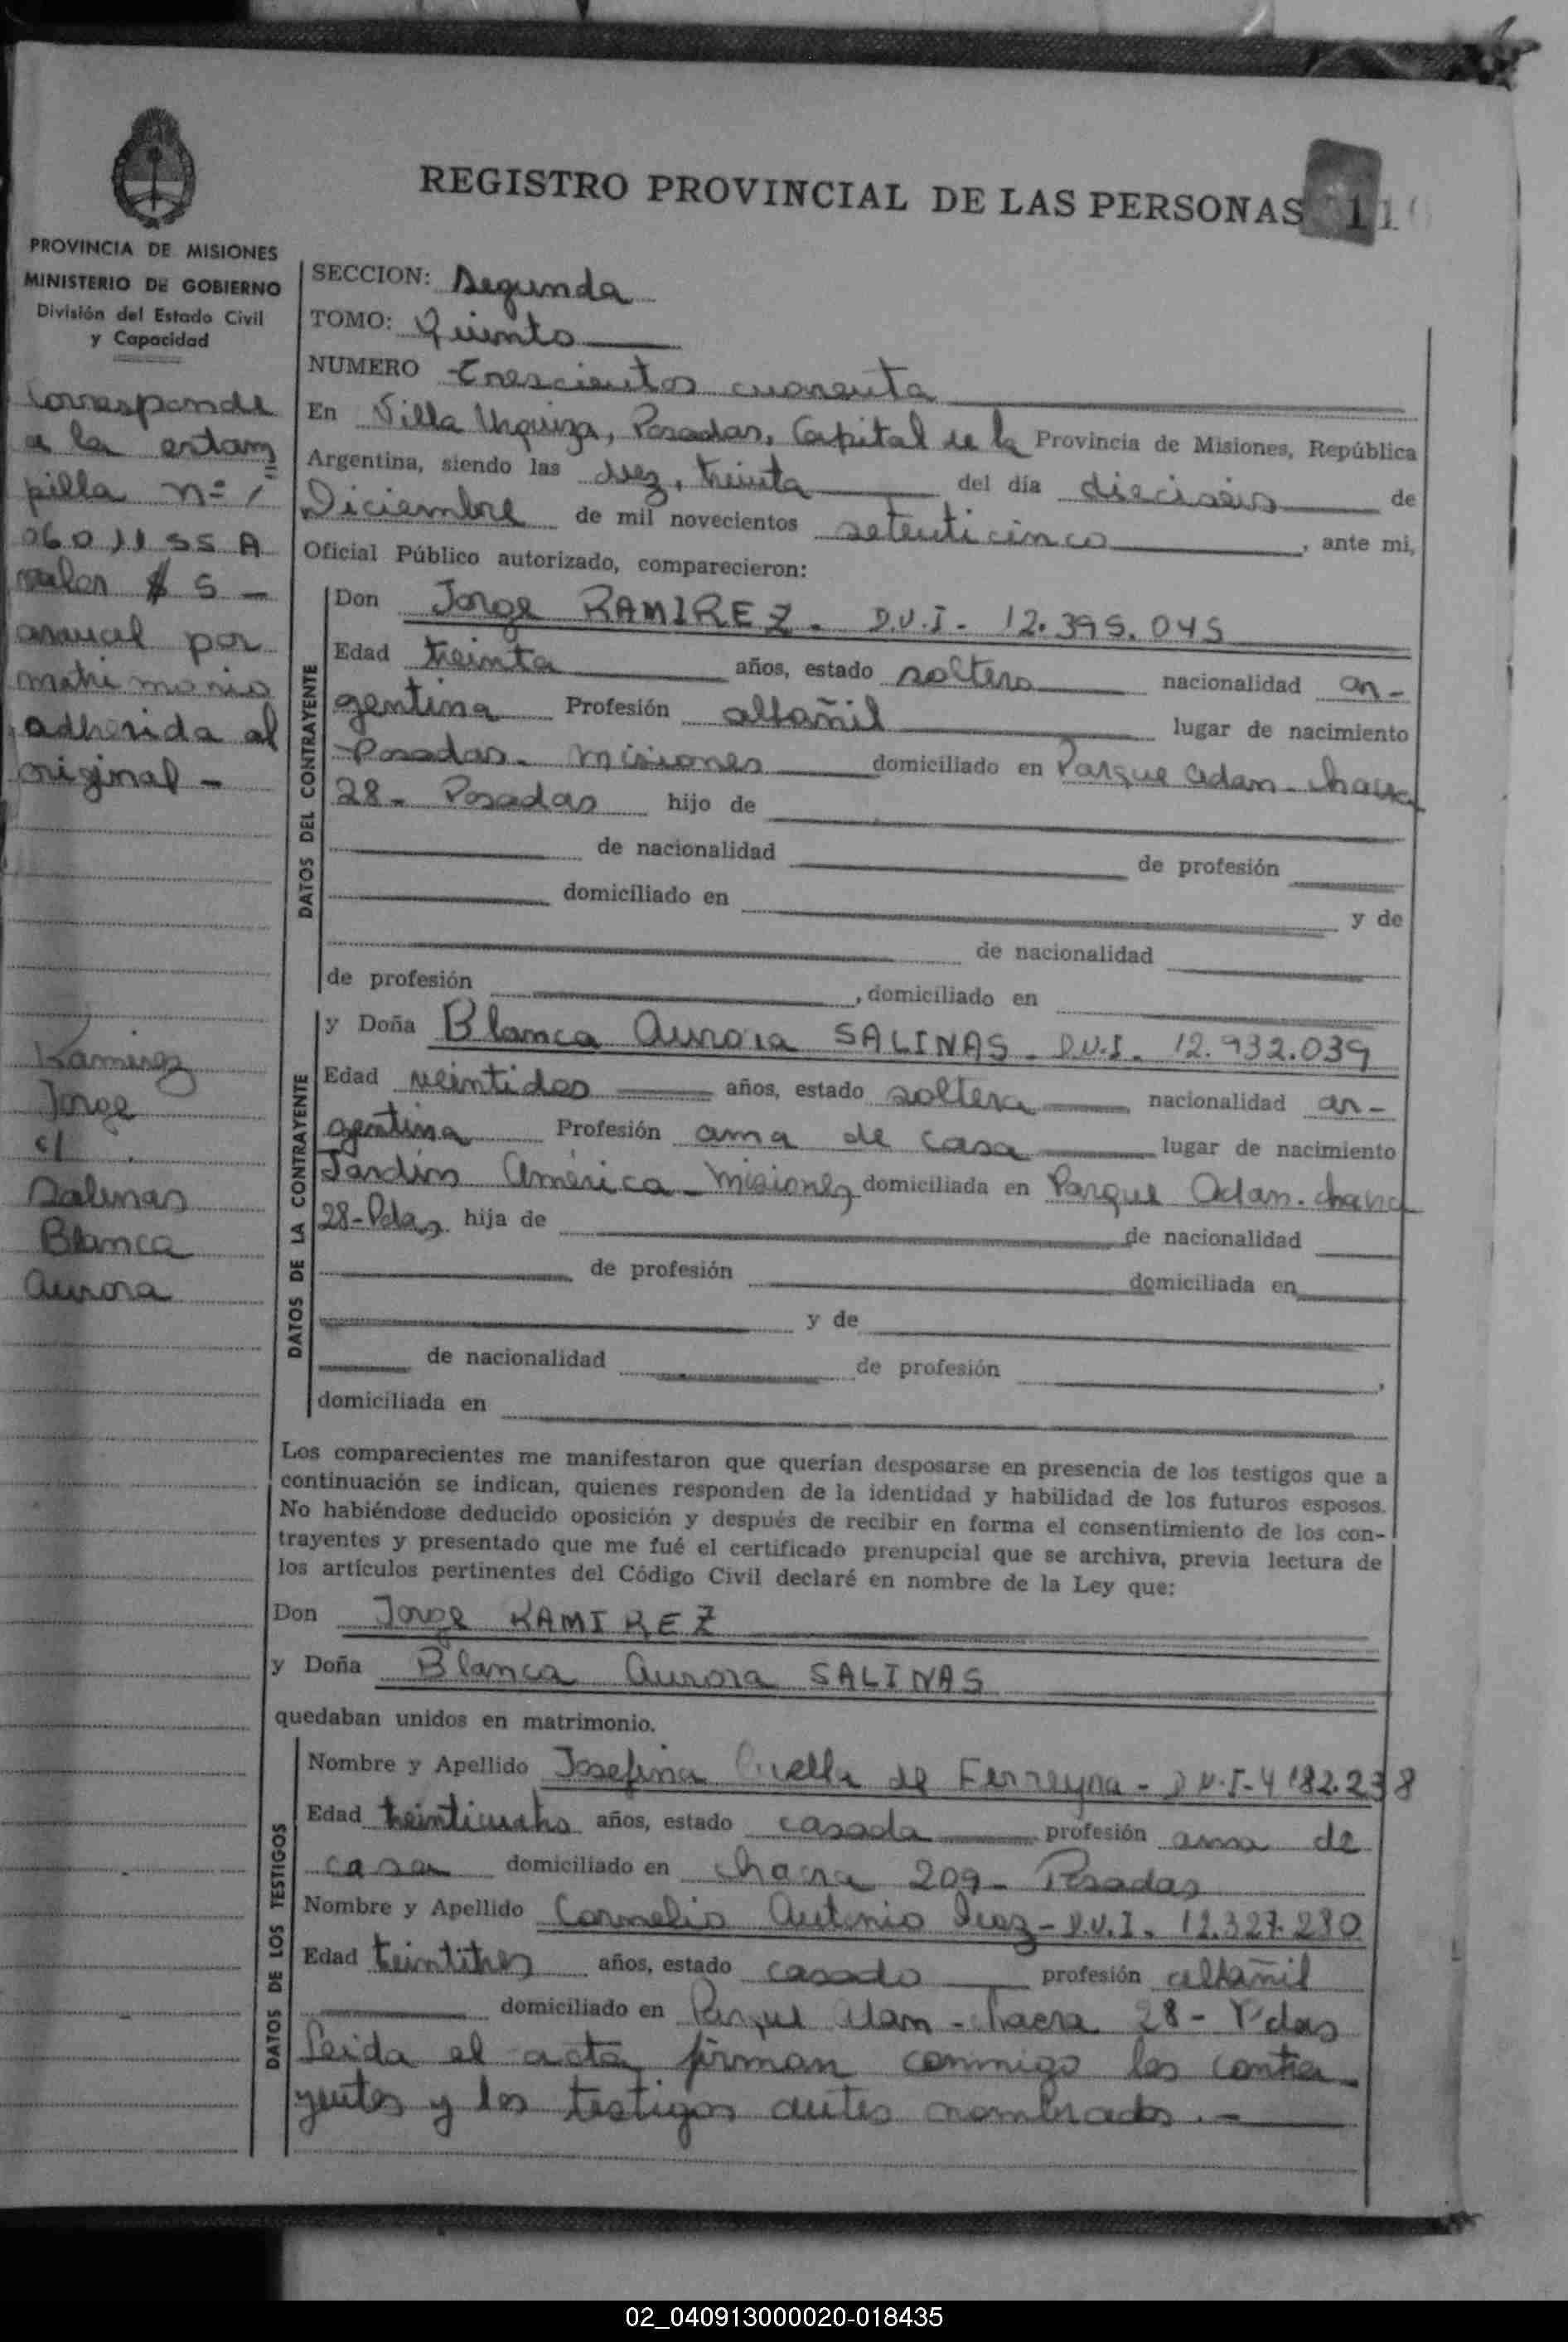 REGISTRO PROVINCIAL DE LAS PERSONAS
11
PROVINCIA DE MISIONES
MINISTERIO DE GOBIERNO
División del Estado Civil
y Capacidad
Corresponde
a la estam
pilla nº 1
0601155 A
valor $ 5 -
anual por
matrimonio
adherida al
original -
Ramirez
Jorge
c/
Salinas
Blanca
Aurora
SECCION: Segunda
TOMO: Quinto
NUMERO Trescientos cuarenta
En Villa Urquiza, Posadas, Capital de la Provincia de Misiones, República
Argentina, siendo las diez, treinta del día dieciseis de
Diciembre de mil novecientos setenticinco, ante mi,
Oficial Público autorizado, comparecieron:
DATOS DEL CONTRAYENTE
Don Jorge RAMIREZ. D.N.I. 12.395.045
Edad treinta años, estado soltero nacionalidad ar-
gentina Profesión albañil lugar de nacimiento
Posadas. Misiones domiciliado en Parque Adan. Chacra
28- Posadas hijo de
de nacionalidad de profesión
domiciliado en y de
de nacionalidad
de profesión , domiciliado en
DATOS DE LA CONTRAYENTE
y Doña Blanca Aurora SALINAS. D.N.I. 12.932.039
Edad veintidos años, estado soltera nacionalidad ar-
gentina Profesión ama de casa lugar de nacimiento
Jardín América - Misiones domiciliada en Parque Adan. Chacra
28-Pdas hija de de nacionalidad
de profesión domiciliada en
y de
de nacionalidad de profesión ,
domiciliada en
Los comparecientes me manifestaron que querían desposarse en presencia de los testigos que a
continuación se indican, quienes responden de la identidad y habilidad de los futuros esposos.
No habiéndose deducido oposición y después de recibir en forma el consentimiento de los con-
trayentes y presentado que me fué el certificado prenupcial que se archiva, previa lectura de
los artículos pertinentes del Código Civil declaré en nombre de la Ley que:
Don Jorge RAMIREZ
y Doña Blanca Aurora SALINAS
quedaban unidos en matrimonio.
DATOS DE LOS TESTIGOS
Nombre y Apellido Josefina de Ferreyra - D.N.I-4182.238
Edad treinticuatro años, estado casada profesión ama de
casa domiciliado en chacra 209- Posadas
Nombre y Apellido Cornelio Antonio Diaz-D.N.I. 12.327.230
Edad treintitres años, estado casado profesión albañil
domiciliado en Parque Adam - Chacra 28- Pdas
Leida el acta, firman conmigo los contra-
yentes y los testigos antes nombrados.-
02_040913000020-018435